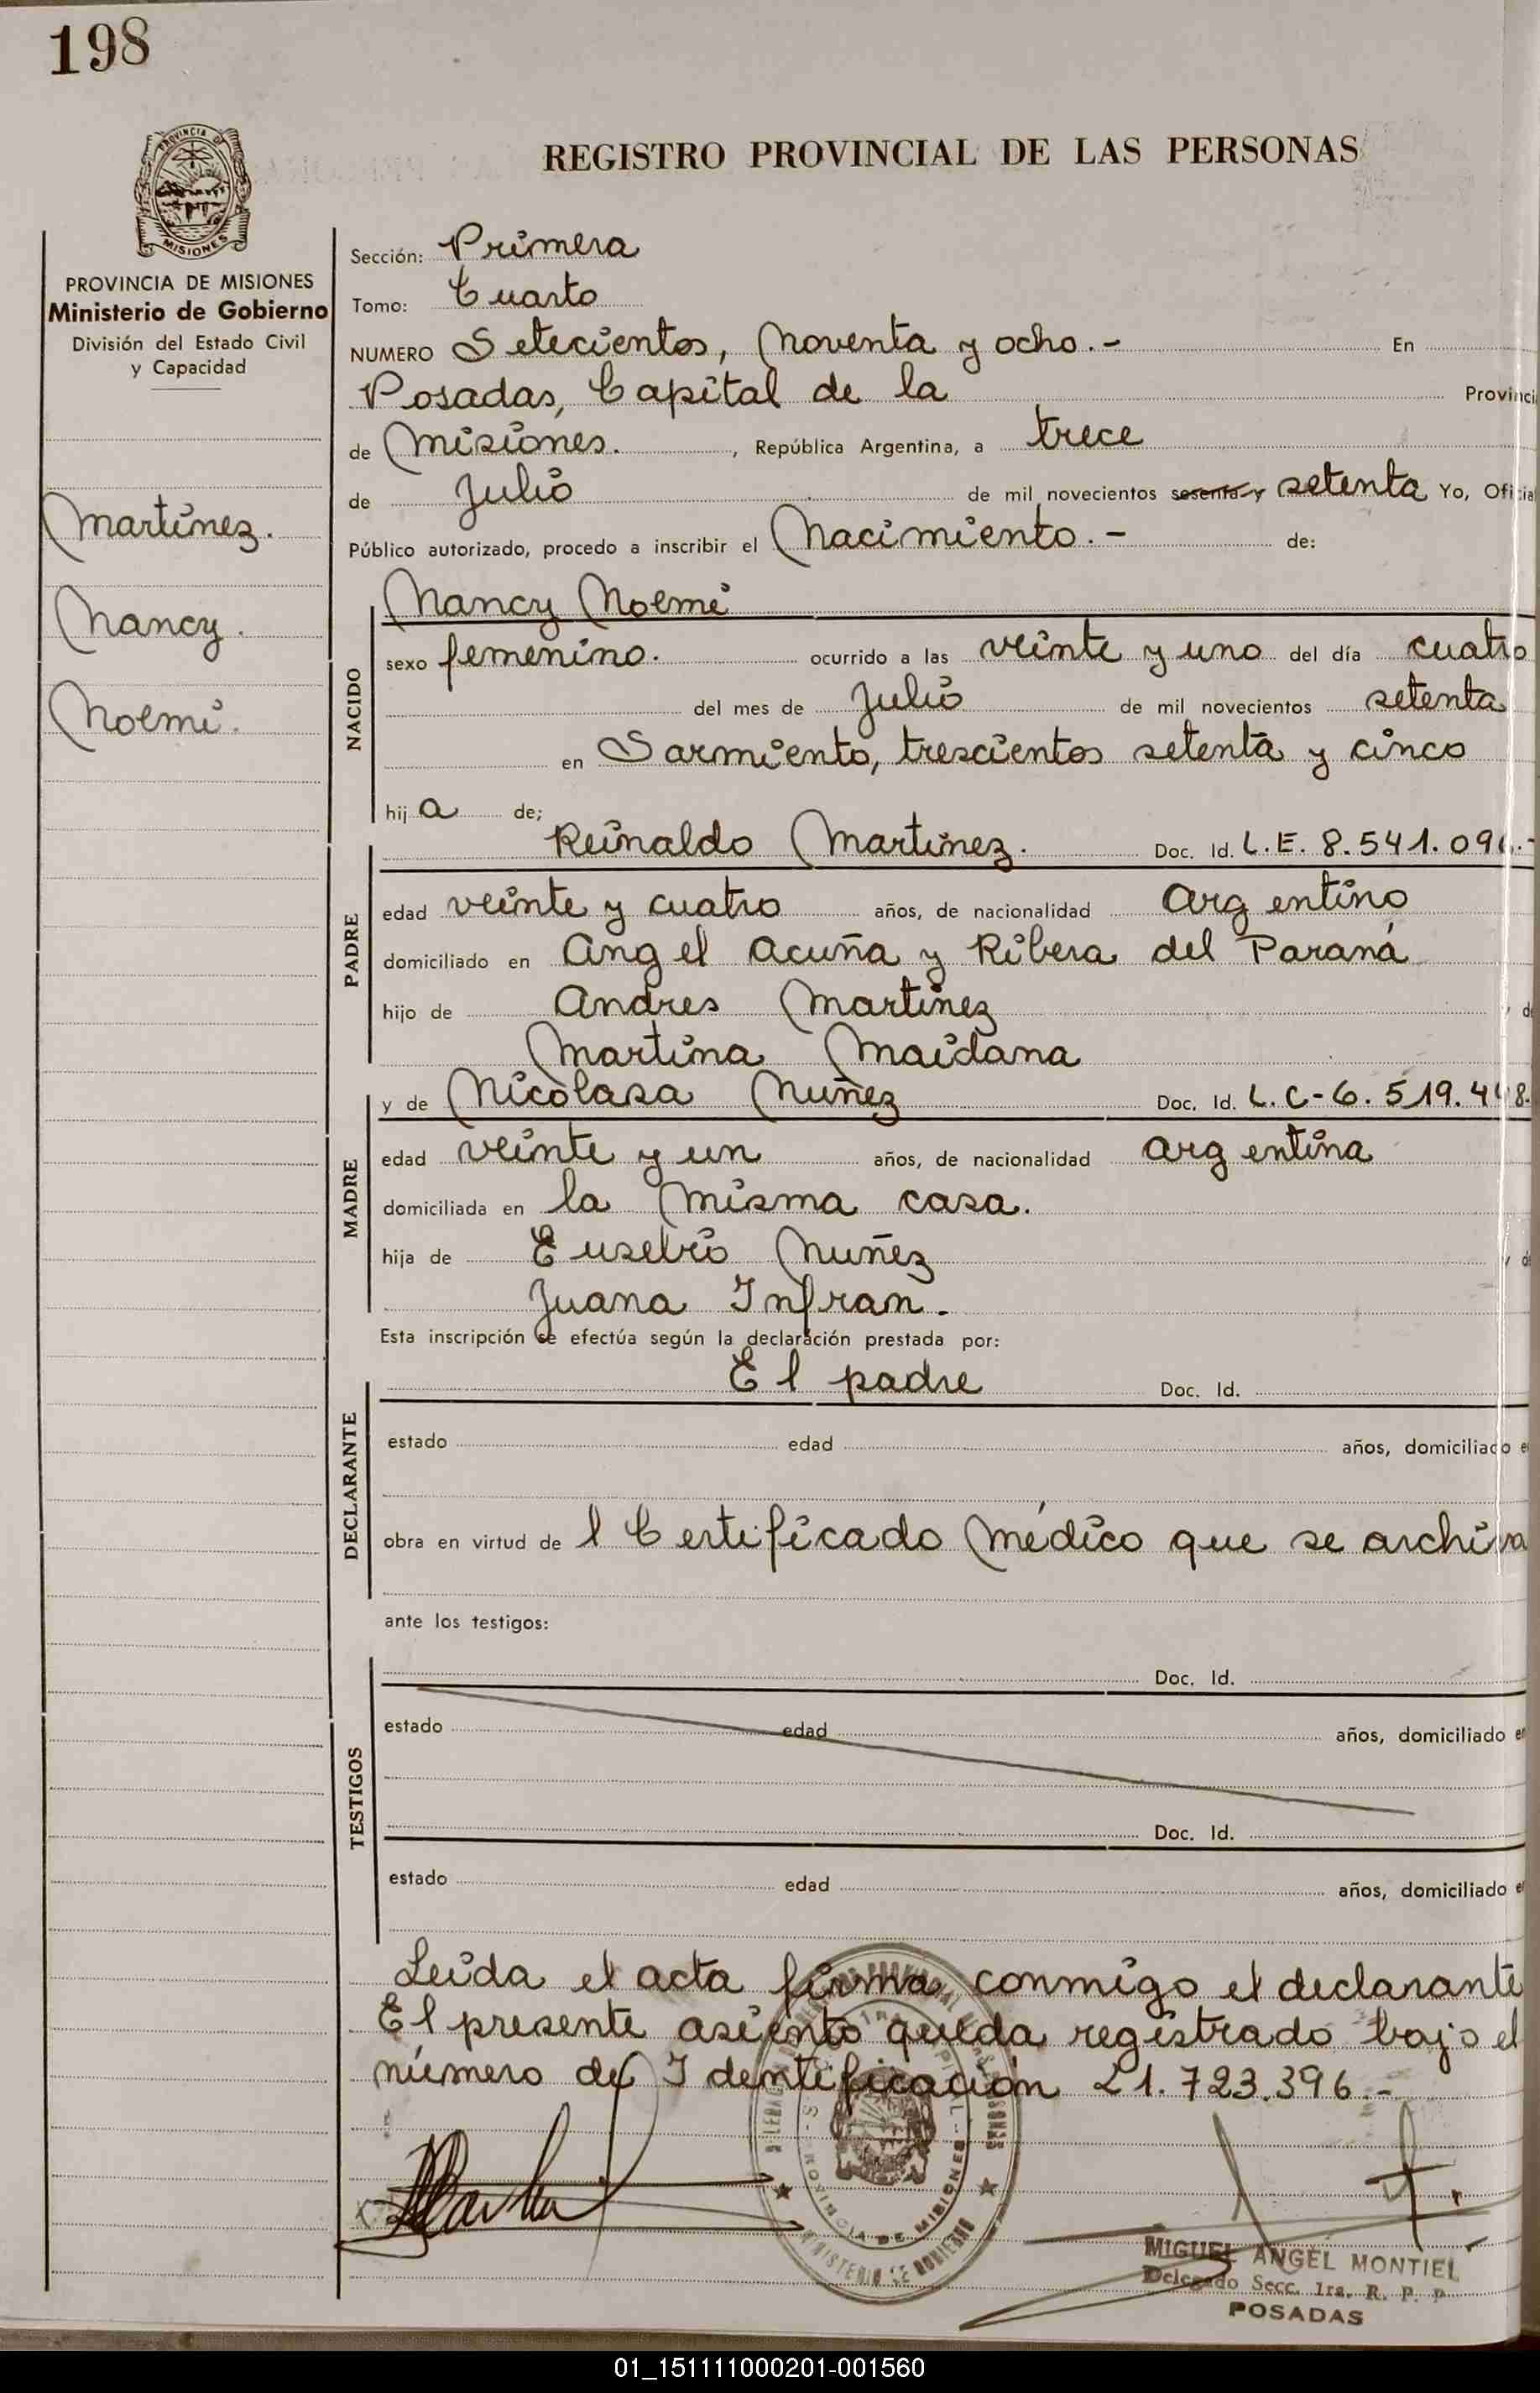 198
PROVINCIA DE
MISIONES
REGISTRO PROVINCIAL DE LAS PERSONAS
PROVINCIA DE MISIONES
Ministerio de Gobierno
División del Estado Civil
y Capacidad
Martinez.
Nancy.
Noemi.
Sección: Primera
Tomo: Cuarto
NUMERO Setecientos, Noventa y ocho.- En
Posadas, Capital de la Provinci
de Misiones. , República Argentina, a trece
de Julio de mil novecientos sesenta y setenta Yo, Oficial
Público autorizado, procedo a inscribir el Nacimiento.- de:
NACIDO
Nancy Noemi
sexo femenino. ocurrido a las veinte y uno del día cuatro
del mes de Julio de mil novecientos setenta
en Sarmiento, trescientos setenta y cinco
hij a de;
PADRE
Reinaldo Martinez. Doc. Id. L.E. 8.541.096.-
edad veinte y cuatro años, de nacionalidad Argentino
domiciliado en Angel Acuña y Ribera del Paraná
hijo de Andres Martinez y d
Martina Maidana
MADRE
y de Nicolasa Nuñez Doc. Id. L.C-6.519.448.
edad veinte y un años, de nacionalidad Argentina
domiciliada en la misma casa.
hija de Eusebio Nuñez y d
Juana Infran.
Esta inscripción se efectúa según la declaración prestada por:
DECLARANTE
El padre Doc. Id.
estado edad años, domiciliado e
obra en virtud de l Certificado Médico que se archiva
ante los testigos:
TESTIGOS
Doc. Id.
estado edad años, domiciliado e
Doc. Id.
estado edad años, domiciliado e
Leida el acta firma conmigo el declarante
El presente asiento queda registrado bajo el
número de Identificación 21.723.396.-
PROVINCIA DE MISIONES
MINISTERIO DE GOBIERNO
MIGUEL ANGEL MONTIEL
Delegado Secc. 1ra. R. P. P.
POSADAS
01_151111000201-001560